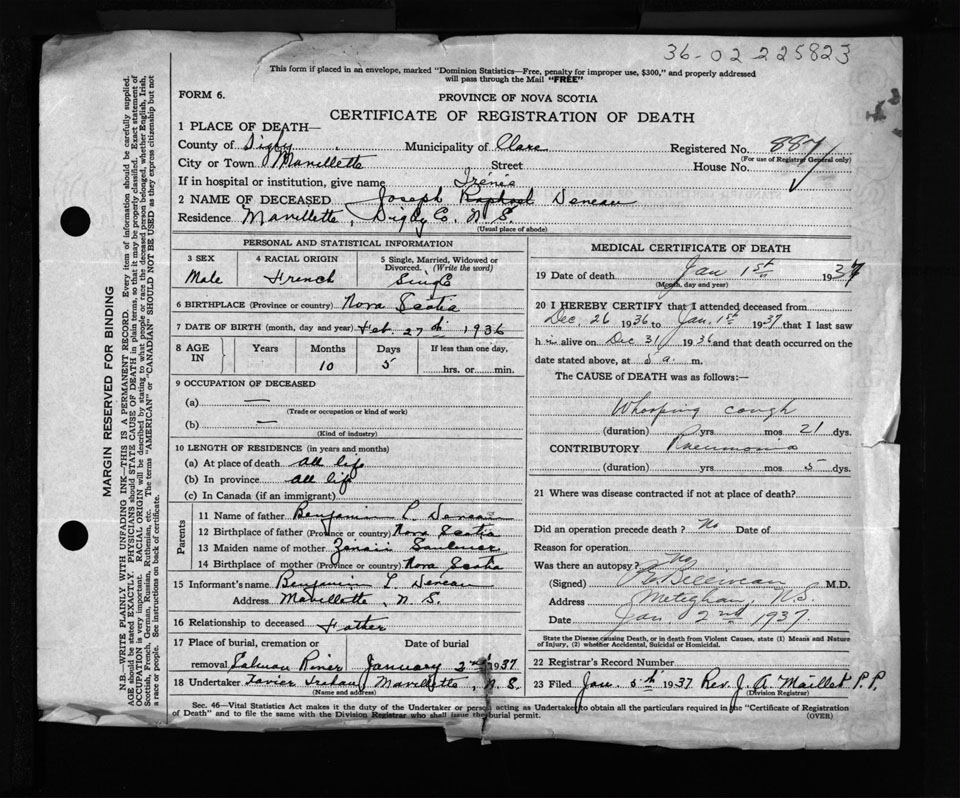 36-02 225823
This form if placed in an envelope, marked "Dominion Statistics—Free, penalty for improper use, $300," and properly addressed
will pass through the Mail "FREE"
FORM 6.
PROVINCE OF NOVA SCOTIA
CERTIFICATE OF REGISTRATION OF DEATH
1 PLACE OF DEATH—
County of Digby Municipality of Clare Registered No. 887
(For use of Registrar General only)
City or Town Mavillette Street House No.
If in hospital or institution, give name
Irénée
2 NAME OF DECEASED Joseph Raphael Deneau
Residence Mavillette, Digby Co. N. S.
(Usual place of abode)
PERSONAL AND STATISTICAL INFORMATION
3 SEX 4 RACIAL ORIGIN 5 Single, Married, Widowed or
Divorced. (Write the word)
Male French Single
6 BIRTHPLACE (Province or country) Nova Scotia
7 DATE OF BIRTH (month, day and year) Feb. 27th 1936
8 AGE IN Years Months Days If less than one day,
10 5 hrs. or min.
9 OCCUPATION OF DECEASED
(a) —
(Trade or occupation or kind of work)
(b) —
(Kind of industry)
10 LENGTH OF RESIDENCE (in years and months)
(a) At place of death all life
(b) In province all life
(c) In Canada (if an immigrant)
Parents
11 Name of father Benjamin L. Deneau
12 Birthplace of father (Province or country) Nova Scotia
13 Maiden name of mother Saulnier
14 Birthplace of mother (Province or country) Nova Scotia
15 Informant's name Benjamin L Deneau
Address Mavillette, N. S.
16 Relationship to deceased Father
17 Place of burial, cremation or Date of burial
removal Salmon River January 2nd 1937
18 Undertaker Mavillette, N. S.
(Name and address)
MEDICAL CERTIFICATE OF DEATH
19 Date of death Jan 1st 1937
(Month, day and year)
20 I HEREBY CERTIFY that I attended deceased from
Dec. 26 1936 to Jan. 1st 1937 that I last saw
him alive on Dec 31 1936 and that death occurred on the
date stated above, at 5 a. m.
The CAUSE of DEATH was as follows:—
Whooping cough
(duration) yrs. mos. 21 dys.
CONTRIBUTORY Pneumonia
(duration) yrs. mos. 5 dys.
21 Where was disease contracted if not at place of death?
Did an operation precede death? No Date of
Reason for operation
Was there an autopsy? No
(Signed) Belliveau M.D.
Address Meteghan, N.S.
Date Jan 2nd 1937.
State the Disease causing Death, or in death from Violent Causes, state (1) Means and Nature
of Injury, (2) whether Accidental, Suicidal or Homicidal.
22 Registrar's Record Number
23 Filed Jan 5th 1937 Rev. J. A. Maillet P.P.
(Division Registrar)
Sec. 46—Vital Statistics Act makes it the duty of the Undertaker or person acting as Undertaker to obtain all the particulars required in the "Certificate of Registration
of Death" and to file the same with the Division Registrar who shall issue the burial permit. (OVER)
MARGIN RESERVED FOR BINDING
N.B.—WRITE PLAINLY WITH UNFADING INK—THIS IS A PERMANENT RECORD. Every item of information should be carefully supplied.
AGE should be stated EXACTLY. PHYSICIANS should STATE CAUSE OF DEATH in plain terms, so that it may be properly classified. Exact statement of
OCCUPATION is very important. RACIAL ORIGIN will be described by stating to what people or race the deceased person belonged, whether English, Irish,
Scottish, French, German, Russian, Ruthenian, etc. The terms "AMERICAN" or "CANADIAN" SHOULD NOT BE USED as they express citizenship but not
a race or people. See instructions on back of certificate.